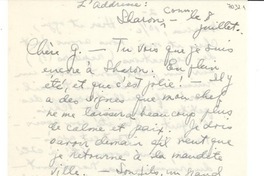 L'addresse:
Sharon, Conn. — le 8
juillet.
Chère G. — Tu vois que je suis
encore à Sharon. En plein
été, et que c'est jolie! — Il y
a des signes que mon chef
ne me laissera beaucoup plus
de calme et paix. Je dois
savoir demain s'il veut que
je retourne à la maudite
ville. — Son fils, un